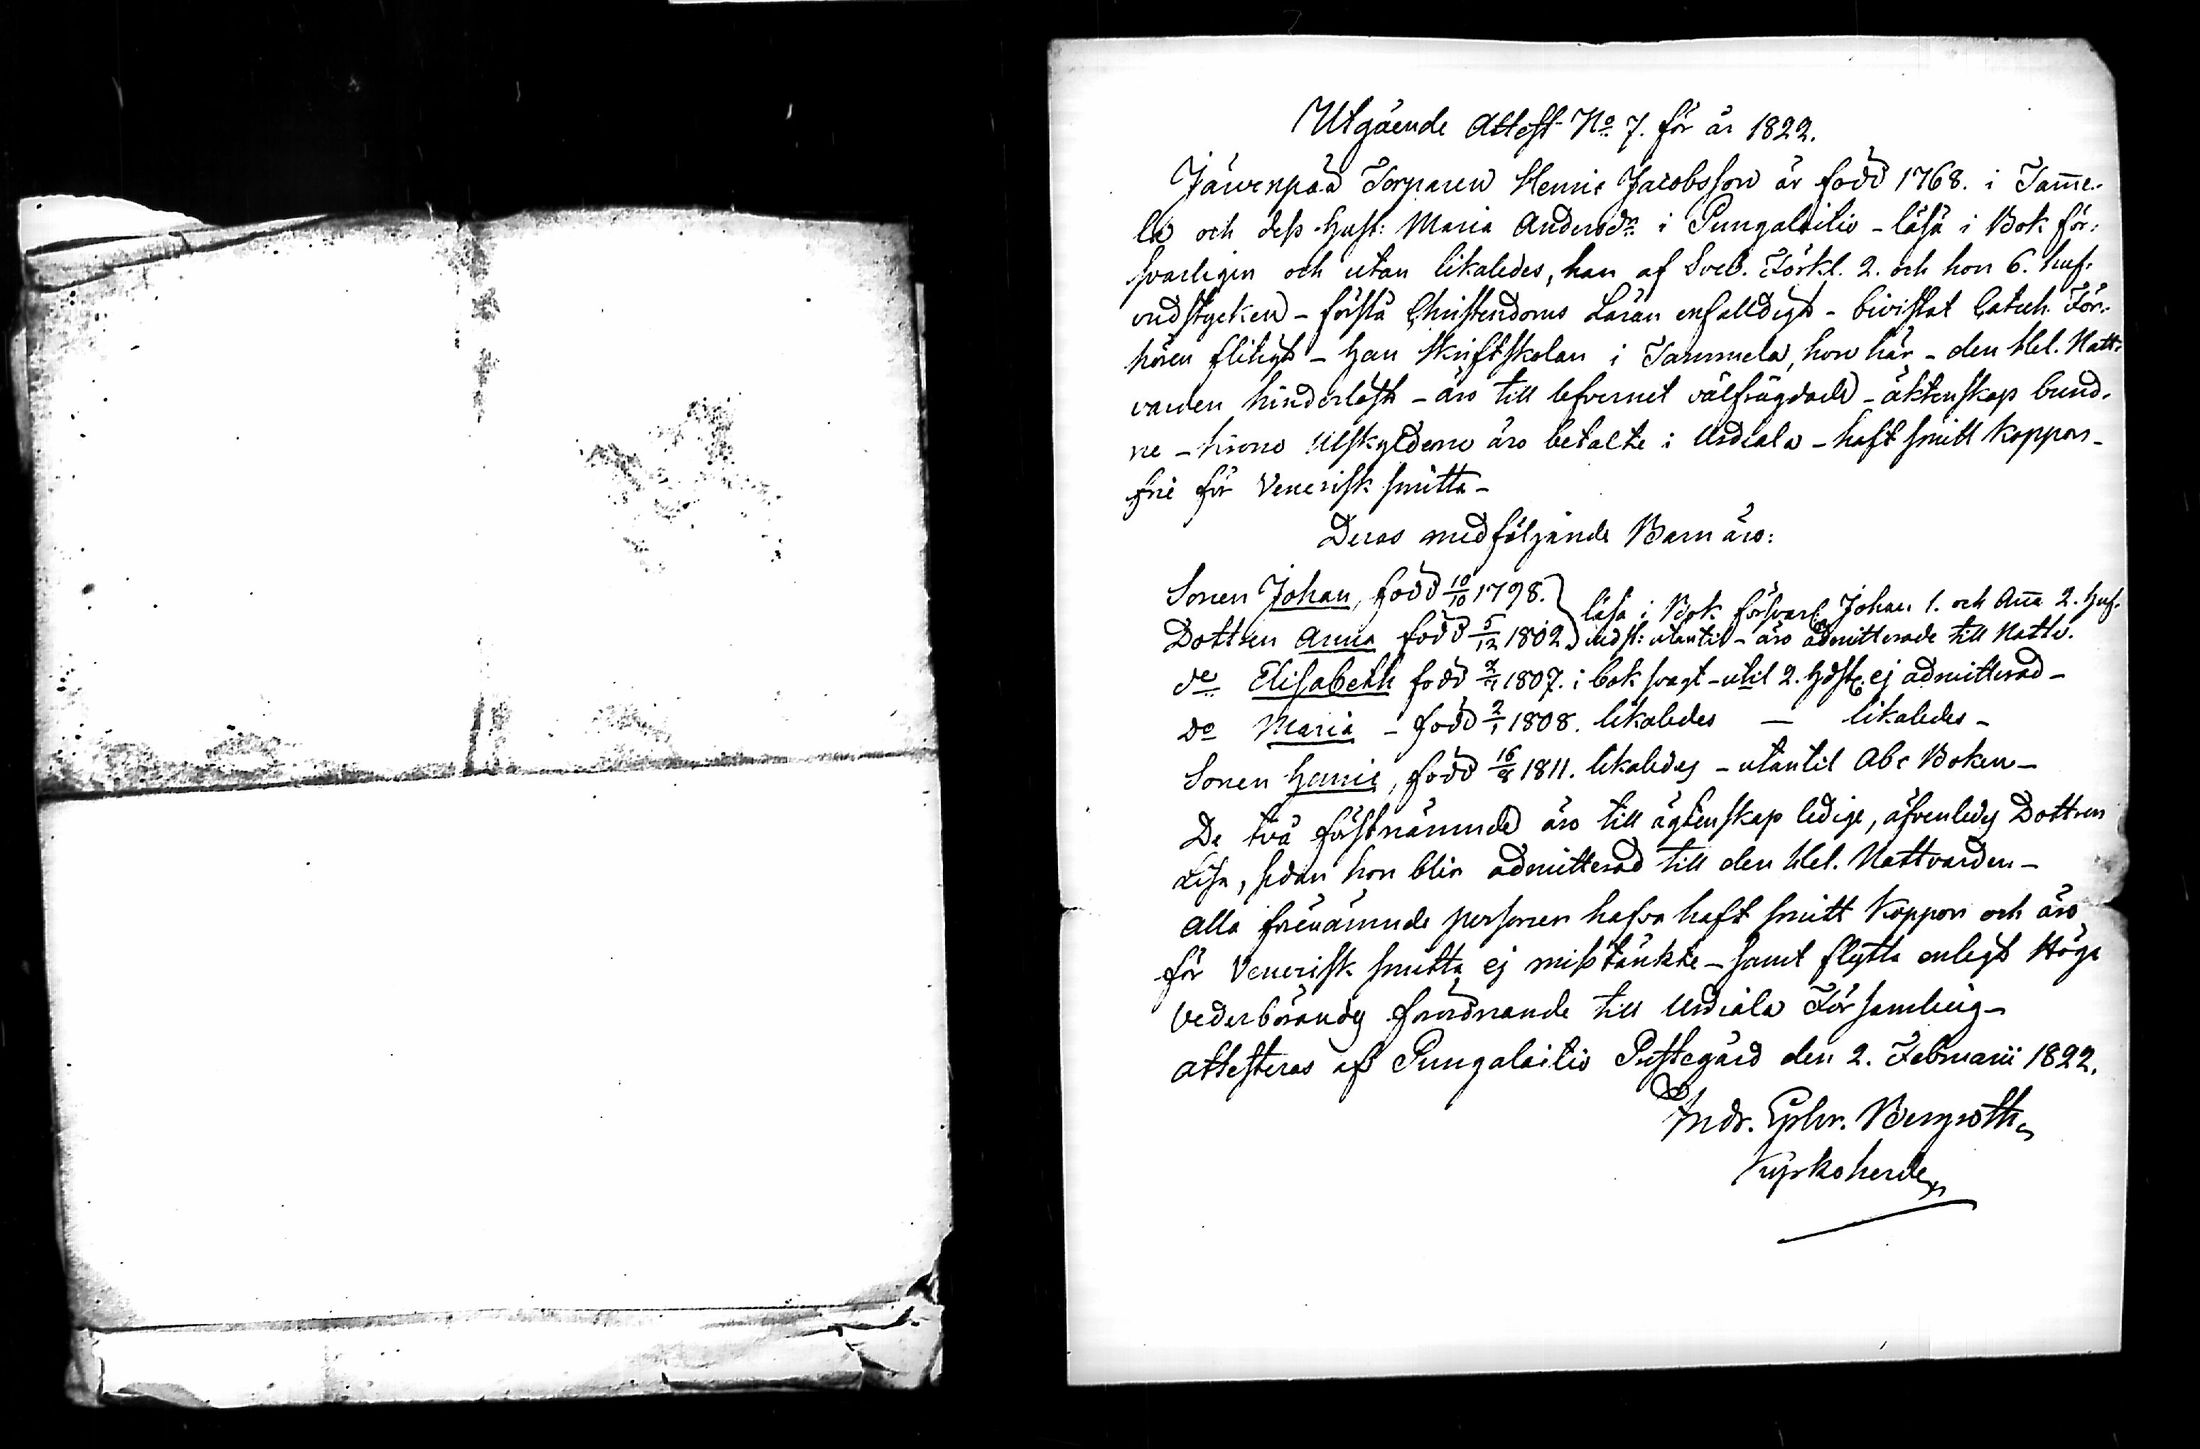 Utgående Attest No 7. för år 1822.
Järvenpää Torparen Henric Jacobsson är född 1768. i Tam̅e-
la och dess hust: Maria Andersdr i Pungalaitio - läsa i Bok för-
svarligen och utan likaledes, han af Sveb. Förkl. 2. och hon 6. huf-
vudstycken - förstå Christendoms Läran enfalldigt - bivistat Catech. För-
hören flitigt - han Skriftskolan i Tammela, hon här - den Hel. Natt-
varden hinderlöst - äro till lefvernet välfrägdade - äktenskap bund-
ne - krono Utskylderne äro betalte i Urdiala - haft smitt koppor -
frie för Venerisk smitta -
Deras medföljande Barn äro:
Sonen Johan, född 10/10 1798.
Dottren Anna född 5/12 1802
läsa i Bok försvarl. Johan 1. och An̅a 2. huf-
vudst: utantil - äro admitterade till Nattv.
do Elisabeth född 2/1 1807. i bok svagt - util 2. hdst. ej admitterad -
do Maria - född 2/1 1808. likaledes — likaledes -
Sonen Henric, född 16/8 1811. likaledes - utantil Abc Boken -
De två förstnämnde äro till ägtenskap ledige, äfvenledes Dottren
Lisa, sedan hon blir admitterad till den Hel. Nattvarden -
Alla förenämnde personer hafva haft smitt koppor och äro
för Venerisk smitta ej misstänkte - samt flytta enligt Höga
Vederbörandes förordnande till Urdiala Församling -
attesteras af Pungalaitio Prestegård den 2. Februarii 1822.
Andr. Ephr. Bergroth
Kyrkoherde